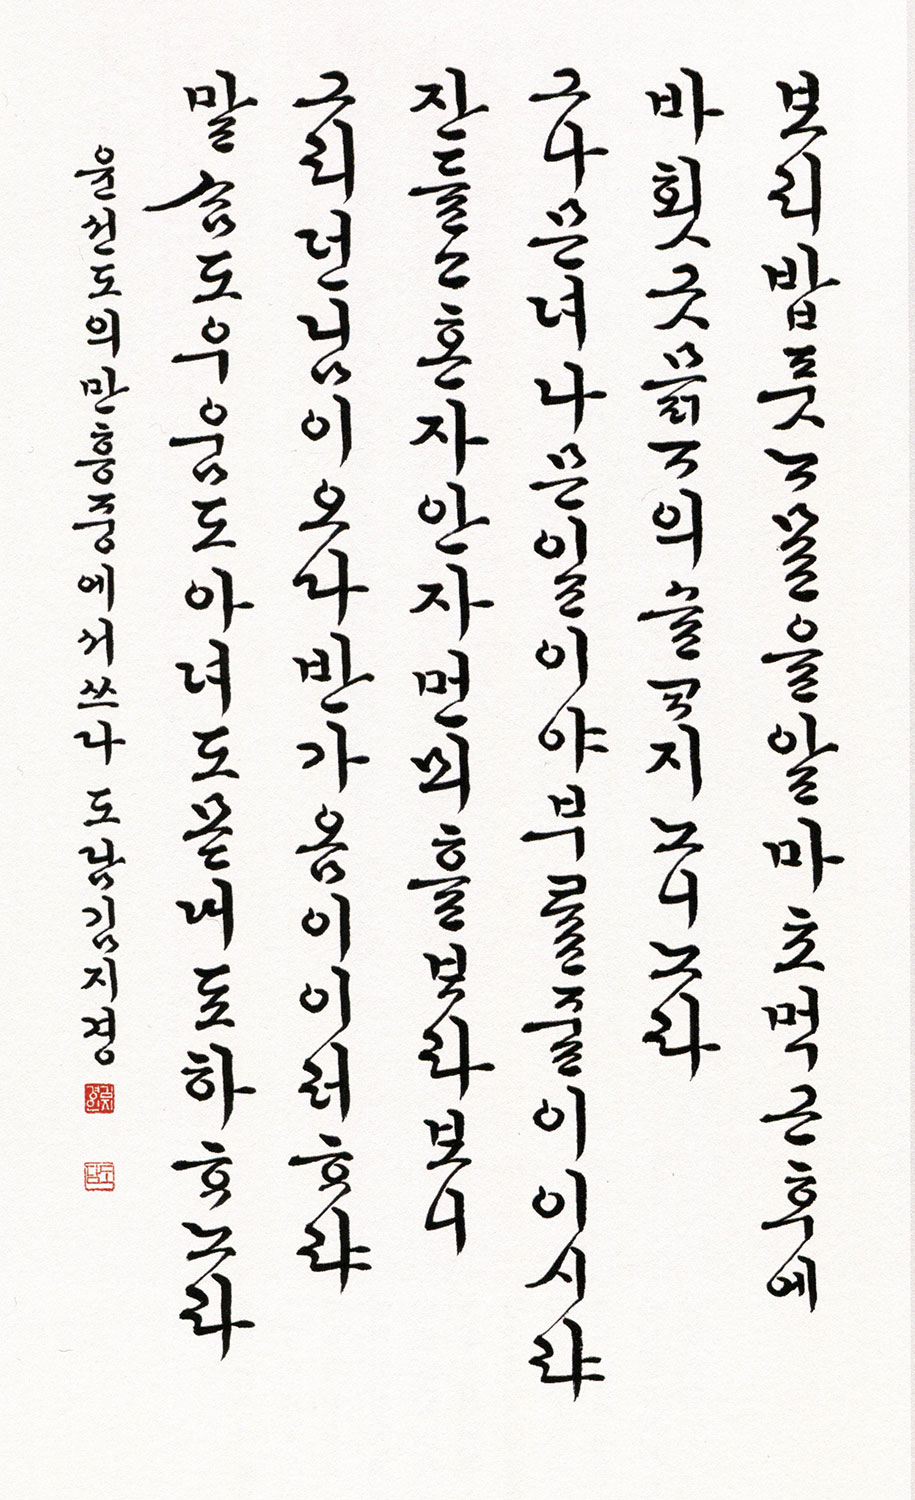 보리밥픗ᄂᆞ믈을알마초먹근후에
바횟긋믉ᄀᆞ의슬ᄏᆞ지노니노라
그나믄녀나믄일이야부ᄅᆞᆯ줄이이시랴
잔들고혼자안자먼뫼흘ᄇᆞ라보니
그리던님이오다반가옴이이러ᄒᆞ랴
말ᄉᆞᆷ도우움도아녀도몯내됴하ᄒᆞ노라
윤선도의만흥중에서쓰다 도남김지경